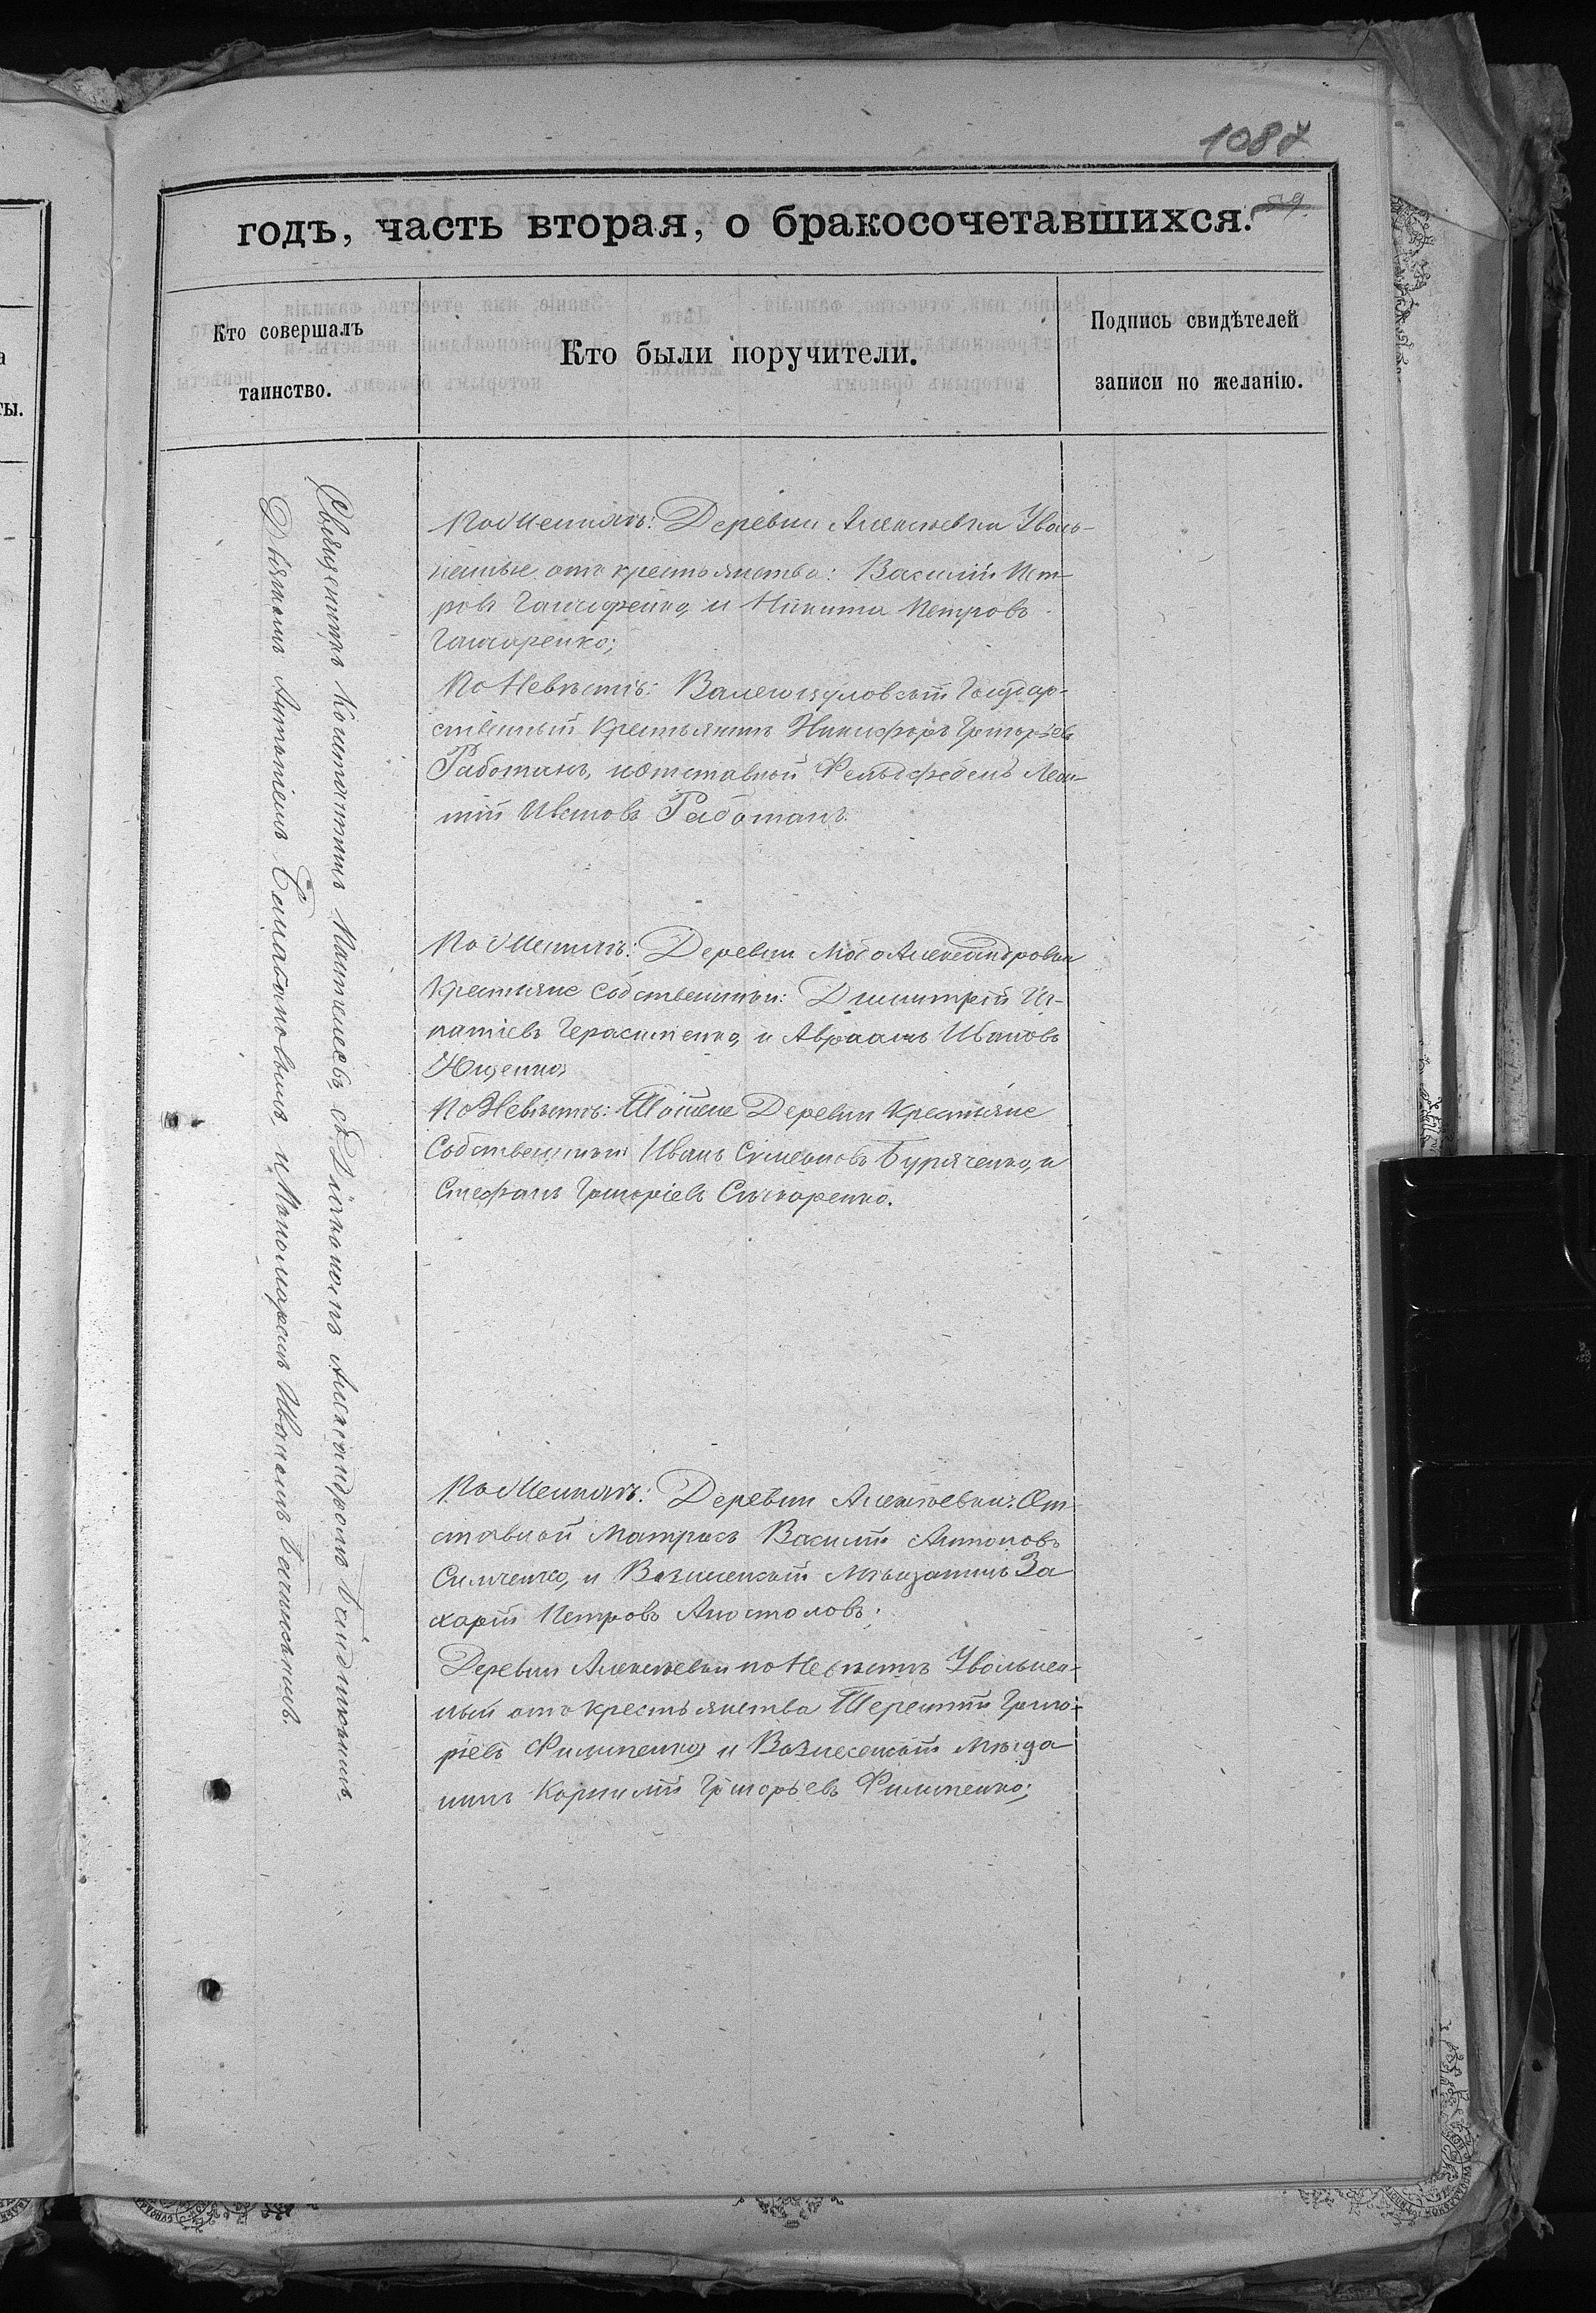 1087
годъ, часть вторая, о бракосочетавшихся.
59.
Кто совершалъ
таинство.
Кто были поручители.
Подпись свидѣтелей
записи по желанію.
Священникъ Константинъ Пантелеевъ, съ Діакономъ Александромъ
Дьячкомъ Антоніемъ Балабановымъ и Пономаремъ Иваномъ
По Женихѣ: Деревни Алексѣевки Уволь-
неные отъ крестьянства: Василій Пет-
ровъ и Никита Петровъ

По Невѣстѣ: Государ-
ственный Крестьянинъ Никифоръ Григорьевъ
Работанъ, и отставной Фельдфебель Леон-
тій Ивановъ Работанъ.
По Женихѣ: Деревни Ново Александровки
Крестьяне собственники: Димитрій Иг-
натіевъ Герасименко, и Авраамъ Ивановъ
Ющенко
По Невѣстѣ: Тойже Деревни Крестьяне
Собственники Иванъ Симеоновъ Буряченко, и
Стефанъ Григоріевъ
По Женихѣ: Деревни Алексѣевки: От-
ставной Матросъ Василій Антоновъ
и Вознесенскій Мѣщанинъ За
харій Петровъ Апостоловъ;
Деревни Алексѣевки по Невѣстѣ Увольнен-
ный отъ крестьянства Терентій Григо-
ріевъ Филипенко, и Вознесенскій Мѣща
нинъ Корнилій Григорьевъ Филипенко;